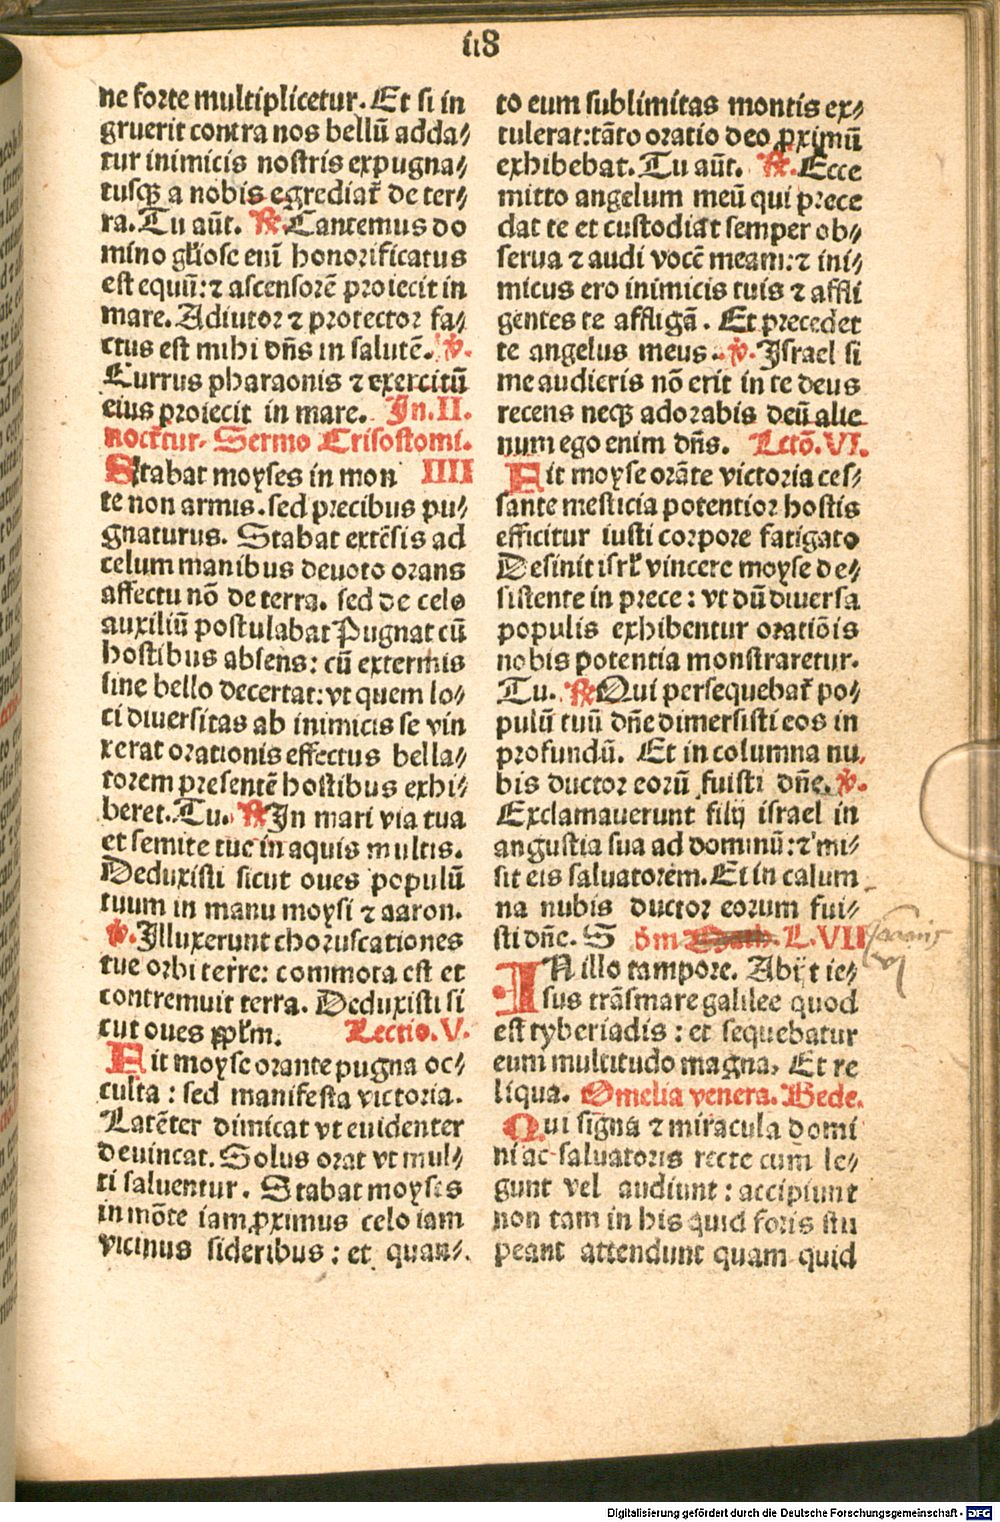 118
ne forte multiplicetur. Et si in
gruerit contra nos bellū adda⸗
tur inimicis nostris expugna⸗
tusqꝫ a nobis egrediat̄ de ter⸗
ra. Tu aūt. ℟. Cantemus do
mino gl̄iose eni̅ honorificatus
est equū: ⁊ ascensorē proiecit in
mare. Adiutor ⁊ protector fa⸗
ctus est mihi dn̄s in salutē. ℣.
Currus pharaonis ⁊ exercitū
eius proiecit in mare. In. II.
noct̄tur. Sermo Crisostomi.
Stabat moyses in mon IIII
te non armis. sed precibus pu⸗
gnaturus. Stabat extēsis ad
celum manibus deuoto orans
affectu nō de terra. sed de celo
auxiliū postulabat Pugnat cū
hostibus absens: cū extermis
sine bello decertat: vt quem lo⸗
ci diuersitas ab inimicis se vin
xerat orationis effectus bella⸗
torem presentē hostibus exhi⸗
beret. Tu. ℟ In mari via tua
et semite tue in aquis multis.
Deduxisti sicut oues populū
tuum in manu moysi ⁊ aaron.
℣. Illuxerunt choruscationes
tue orbi terre: commota est et
contremuit terra. Deduxisti si
cut oues ppl̄m. Lectio. V.
Ait moyse orante pugna oc⸗
culta: sed manifesta victoria.
Latēter dimicat vt euidenter
deuincat. Solus orat vt mul⸗
ti saluentur. Stabat moyses
in mōte iam ꝓximus celo iam
vicinus sideribus: et quan⸗
to eum sublimitas montis ex⸗
tulerat: tāto oratio deo ꝓximū
exhibebat. Tu aūt. ℟. Ecce
mitto angelum meū qui prece
dat te et custodiat semper ob⸗
serua ⁊ audi vocē meam: ⁊ ini⸗
micus ero inimicis tuis ⁊ affli
gentes te affligā. Et precedet
te angelus meus. ℣. Israel si
me audieris nō erit in te deus
recens neqꝫ adorabis deū alie
num ego enim dn̄s. Lctō. VI.
Ait moyse orāte victoria ces⸗
sante mesticia potentior hostis
efficitur iusti corpore fatigato
Desinit isrl̄ vincere moyse de⸗
sistente in prece: vt dū diuersa
populis exhibentur oratiōis
nobis potentia monstraretur.
Tu. ℟ Qui persequebat̄ po⸗
pulū tuū dn̄e dimersisti eos in
profundū. Et in columna nu⸗
bis ductor eorū fuisti dn̄e. ℣.
Exclamauerunt filij israel in
angustia sua ad dominū: ⁊ mi⸗
sit eis saluatorem. Et in calum
na nubis ductor eorum fui⸗
sti dn̄e. S ōm Math. L. VII
Joannis
vj
IN illo tampore. Abijt ie⸗
sus trāsmare galilee quod
est tyberiadis: et sequebatur
eum multitudo magna, Et re
liqua. Omelia venera. Bede.
Qui signa ⁊ miracula domi
ni ac saluatoris recte cum le⸗
gunt vel audiunt: accipiunt
non tam in his quid foris stu
peant attendunt quam quid
Digitalisierung gefördert durch die Deutsche Forschungsgemeinschaft - DFG